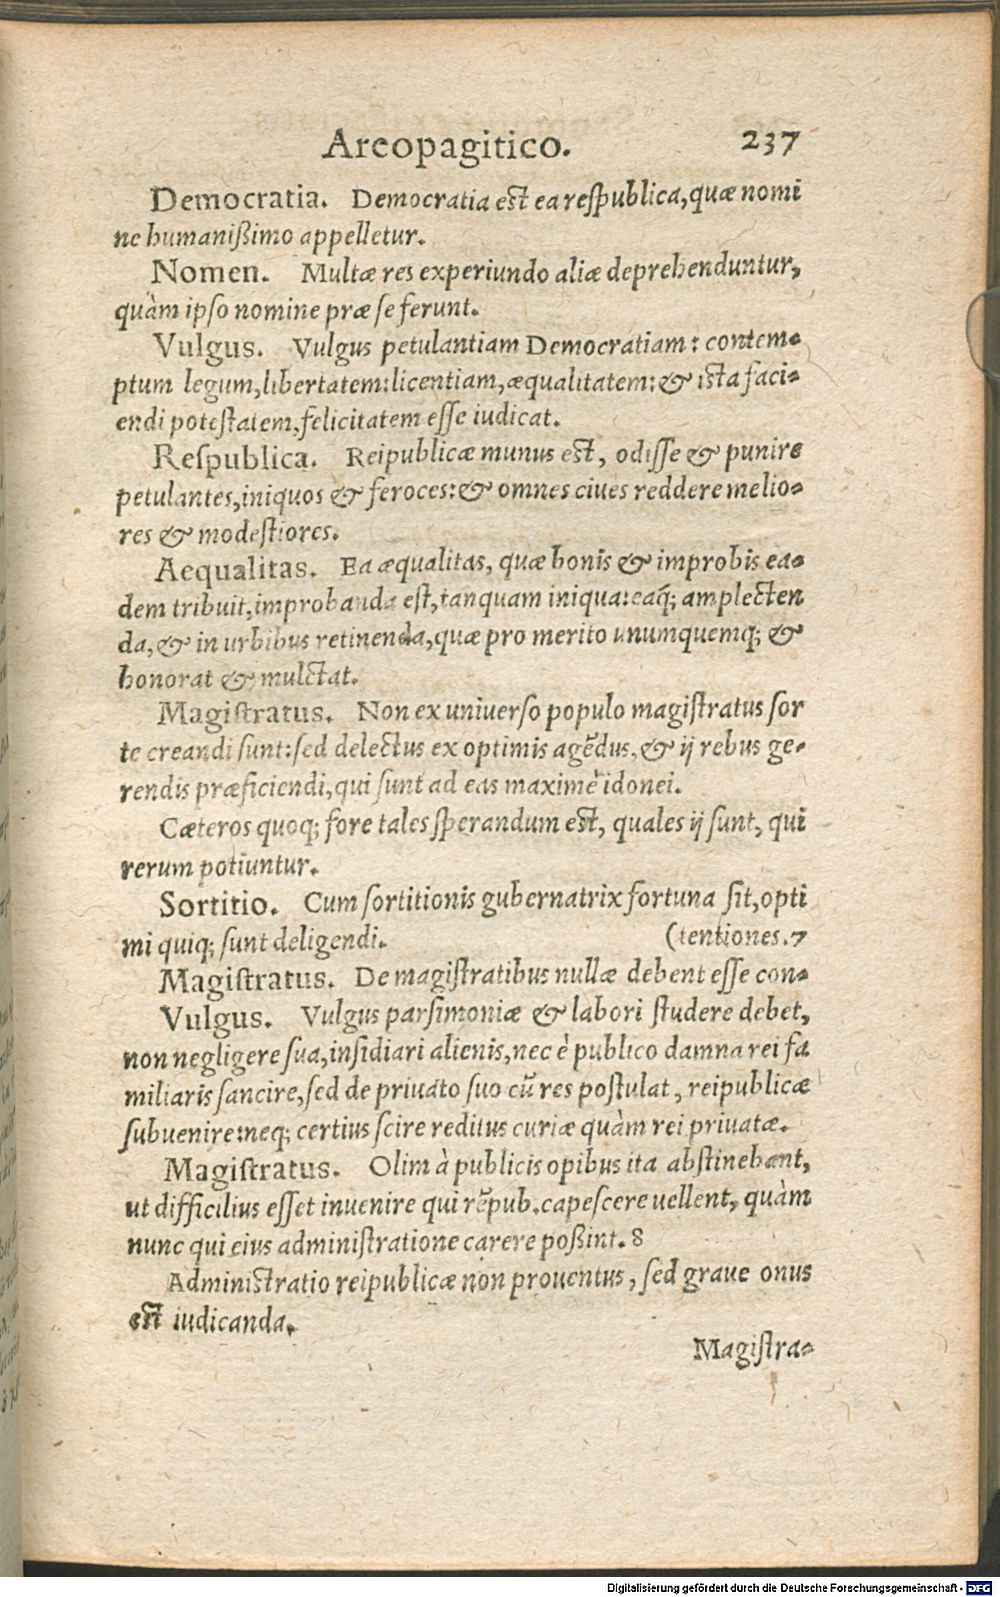 Areopagitico. 237
Democratia. Democratia est ea respublica, quæ nomi
ne humanißimo appelletur.
Nomen. Multæ res experiundo aliæ deprehenduntur,
quàm ipso nomine præ se ferunt.
Vulgus. Vulgus petulantiam Democratiam: contem-
ptum legum, libertatem: licentiam, æqualitatem: & ista faci-
endi potestatem, felicitatem esse iudicat.
Respublica. Reipublicæ munus est, odisse & punire
petulantes, iniquos & feroces: & omnes ciues reddere melio-
res & modestiores.
Aequalitas. Ea æqualitas, quæ bonis & improbis ea-
dem tribuit, improbanda est, tanquam iniqua: eaq; amplecten
da, & in urbibus retinenda, quæ pro merito unumquemq; &
honorat & mulctat.
Magistratus. Non ex uniuerso populo magistratus sor
te creandi sunt: sed delectus ex optimis agẽdus, & ij rebus ge-
rendis præficiendi, qui sunt ad eas maximè idonei.
Cæteros quoq; fore tales sperandum est, quales ij sunt, qui
rerum potiuntur.
Sortitio. Cum sortitionis gubernatrix fortuna sit, opti
mi quiq; sunt deligendi. (tentiones. 7
Magistratus. De magistratibus nullæ debent esse con-
Vulgus. Vulgus parsimoniæ & labori studere debet,
non negligere sua, insidiari alienis, nec è publico damna rei fa
miliaris sancire, sed de priuato suo cũ res postulat, reipublicæ
subuenire: neq; certius scire reditus curiæ quàm rei priuatæ.
Magistratus. Olim à publicis opibus ita abstinebant,
ut difficilius esset inuenire qui rẽpub. capescere uellent, quàm
nunc qui eius administratione carere poßint. 8
Administratio reipublicæ non prouentus, sed graue onus
est iudicanda.
Magistra-
Digitalisierung gefördert durch die Deutsche Forschungsgemeinschaft - DFG